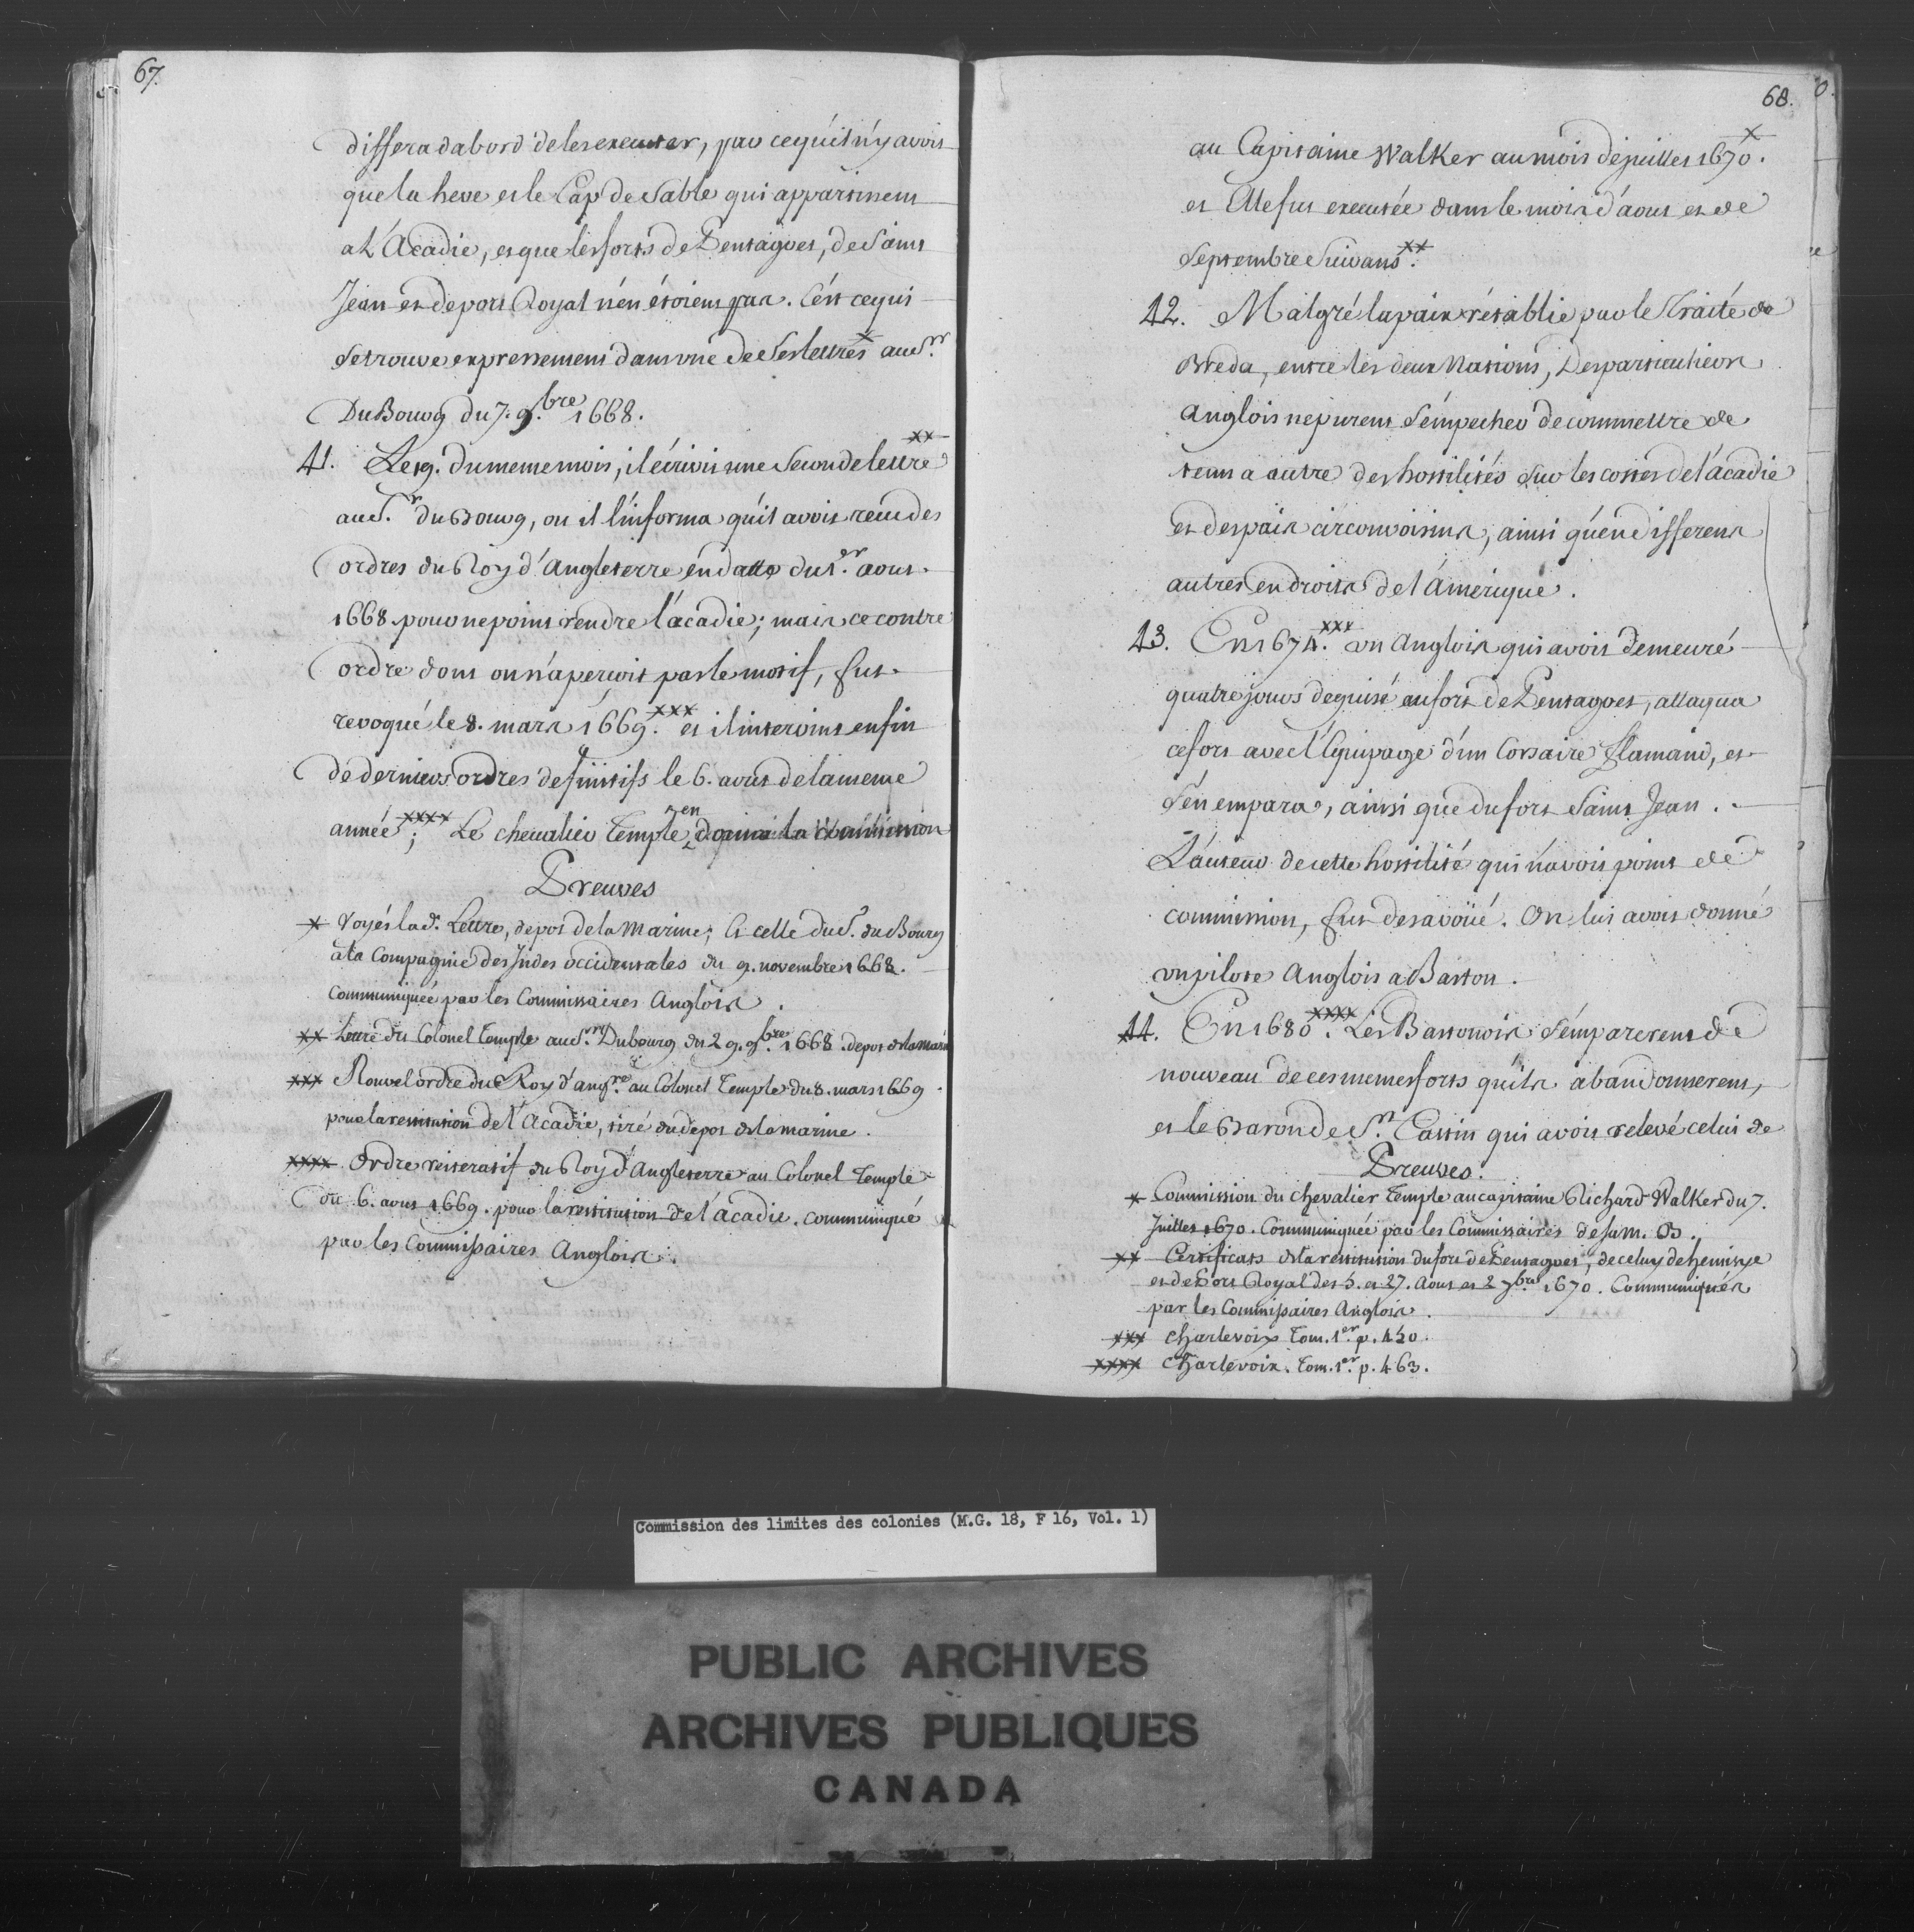 67.
differa dabord de les executer, par ce qu'il n'y avoit
que la heve et le Cap de Sable qui appartinent
a L'Acadie, et que les forts de Pentagoet, de Saint
Jean et de port Royal n'en étoient pas. C'est ce qui
se trouve expressement dans une de ses lettres x au Sr.
Du Bourg du 7. 9.bre 1668.
41. Le 19. du meme mois, il écrivit une seconde lettre xx
au Sr. du Bourg, ou il l'informa qu'il avoit recu des
ordres du Roy d'Angleterre en datte du 1.er aout
1668 pour ne point rendre l'acadie; mais ce contre
ordre dont on n'aperçoit pas le motif, fut
revoqué le 8. mars 1669. xxx et il intervint enfin
de derniers ordres definitifs le 6. aout de la meme
année xxxx; Le chevalier Temple en donna la Commission
Preuves
x Voyés lad. Lettre, depot de la Marine; et celle du S. du Bourg
a la Compagnie des Indes occidentales du 9. novembre 1668.
Communiquée par les Commissaires Anglois.
xx Lettre du Colonel Temple au Sr. Dubourg du 29. 9.bre 1668. depot de la marine
xxx Nouvel ordre du Roy d'angre. au Colonel Temple du 8. mars 1669
pour la restitution de l'Acadie, tiré du depot de la marine.
xxxx Ordre reiteratif du Roy d'Angleterre au Colonel Temple
du 6. aout 1669. pour la restitution de l'acadie. communiqué
par les Commissaires Anglois.
68.
au Capitaine Walker au mois de juillet 1670. x
et Elle fut executée dans le mois d'aout et de
Septembre Suivans xx.
42. Malgré la paix rétablie par le Traité de
Breda, entre les deux Nations, Des particuliers
anglois ne purent s'empecher de commettre de
tems a autre des hostilités sur les costes de l'acadie
et des païs circonvoisins, ainsi qu'en differens
autres endroits de l'Amerique.
43. En 1674. xxx un Anglois qui avoit demeuré
quatre jours deguisé au fort de Pentagoet, attaqua
ce fort avec l'Equipage d'un Corsaire flamand, et
s'en empara, ainsi que du fort Saint Jean.
L'auteur de cette hostilité qui n'avoit point de
commission, fut desavoüé. On lui avoit donné
un pilote Anglois a Baston.
44. En 1680. xxxx Les Bastonois s'emparerent de
nouveau de ces memes forts qu'ils abandonnerent,
et le Baron de St. Castin qui avoit relevé celui de
Preuves.
x Commission du chevalier Temple au capitaine Richard Walker du 7.
Juillet 1670. Communiquée par les Commissaires de sa M. B.
xx Certificats de la restitution du fort de Pentagoet, de celuy de Gemisye
et de Port Royal des 5. et 27. Aout et 2 7.bre 1670. Communiqués
par les Commissaires Anglois.
xxx Charlevoix Tom. 1er. p. 450.
xxxx Charlevoix. Tom. 1er. p. 463.
Commission des limites des colonies (M.G. 18, F 16, Vol. 1)
PUBLIC ARCHIVES
ARCHIVES PUBLIQUES
CANADA